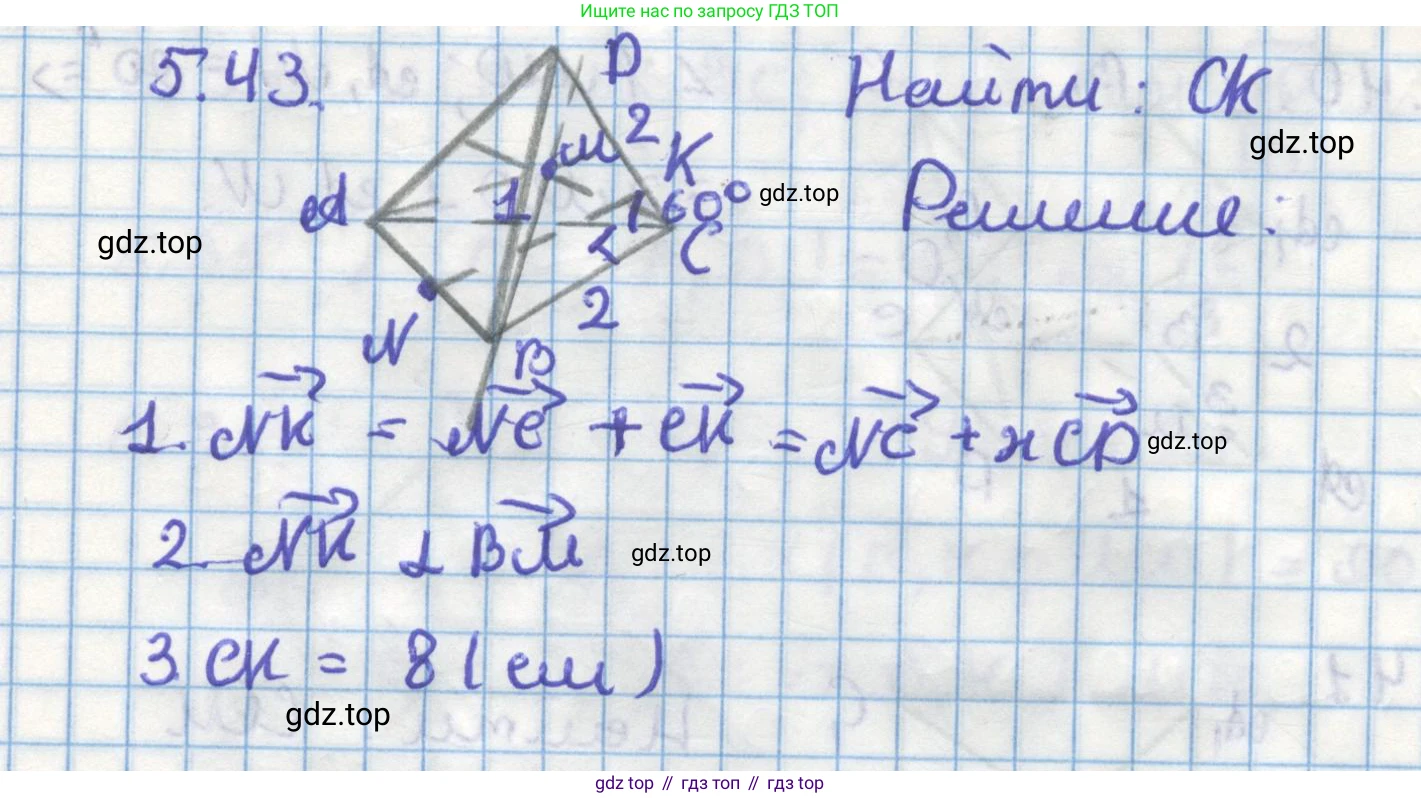 Ищите нас по запросу ГДЗ ТОП
5.43.
D
Найти: CK
gdz.top
2
M
K
A
1
1
60°
gdz.top
Решение:
gdz.top
C
2
N
B
1. NK = NC + CK = NC + xCD
gdz.top
2. NK ⊥ BM
gdz.top
3. CK = 8 (см)
gdz.top
gdz top // гдз топ // гдз top